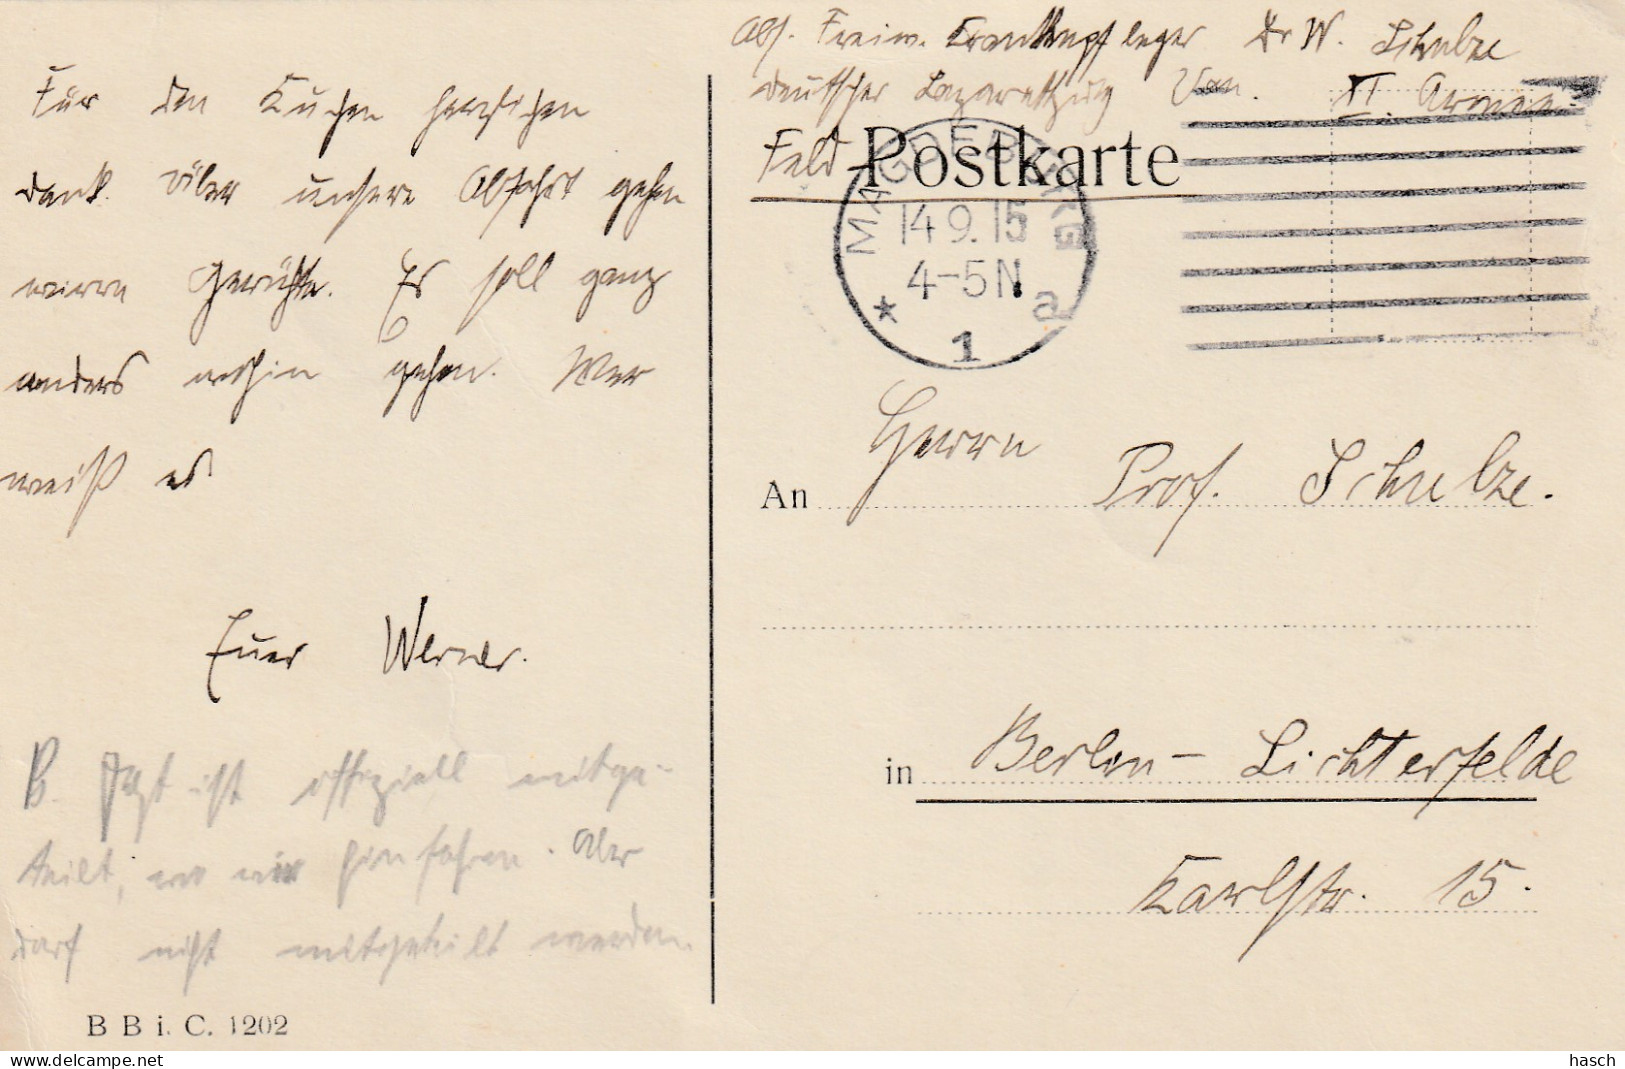 Für den Kuchen herzlichen
Dank. Über unsere Abfahrt gehen
wirre Gerüchte. Es soll ganz
anders wohin gehen. Wer
weiß es
Euer Werner.
Jetzt ist offiziell mitge-
teilt, wo wir hinfahren. Aber
darf nicht mitgeteilt werden.
B B i. C. 1202
Abs. Freiw. Krankenpfleger Dr W. Schulze
Deutscher Lazarettzug II. Armee
Feld-Postkarte
MAGDEBURG
14.9.15
4-5N
* 1 a
An Herrn Prof. Schulze.
in Berlin-Lichterfelde
Karlstr. 15.
hasch
www.delcampe.net